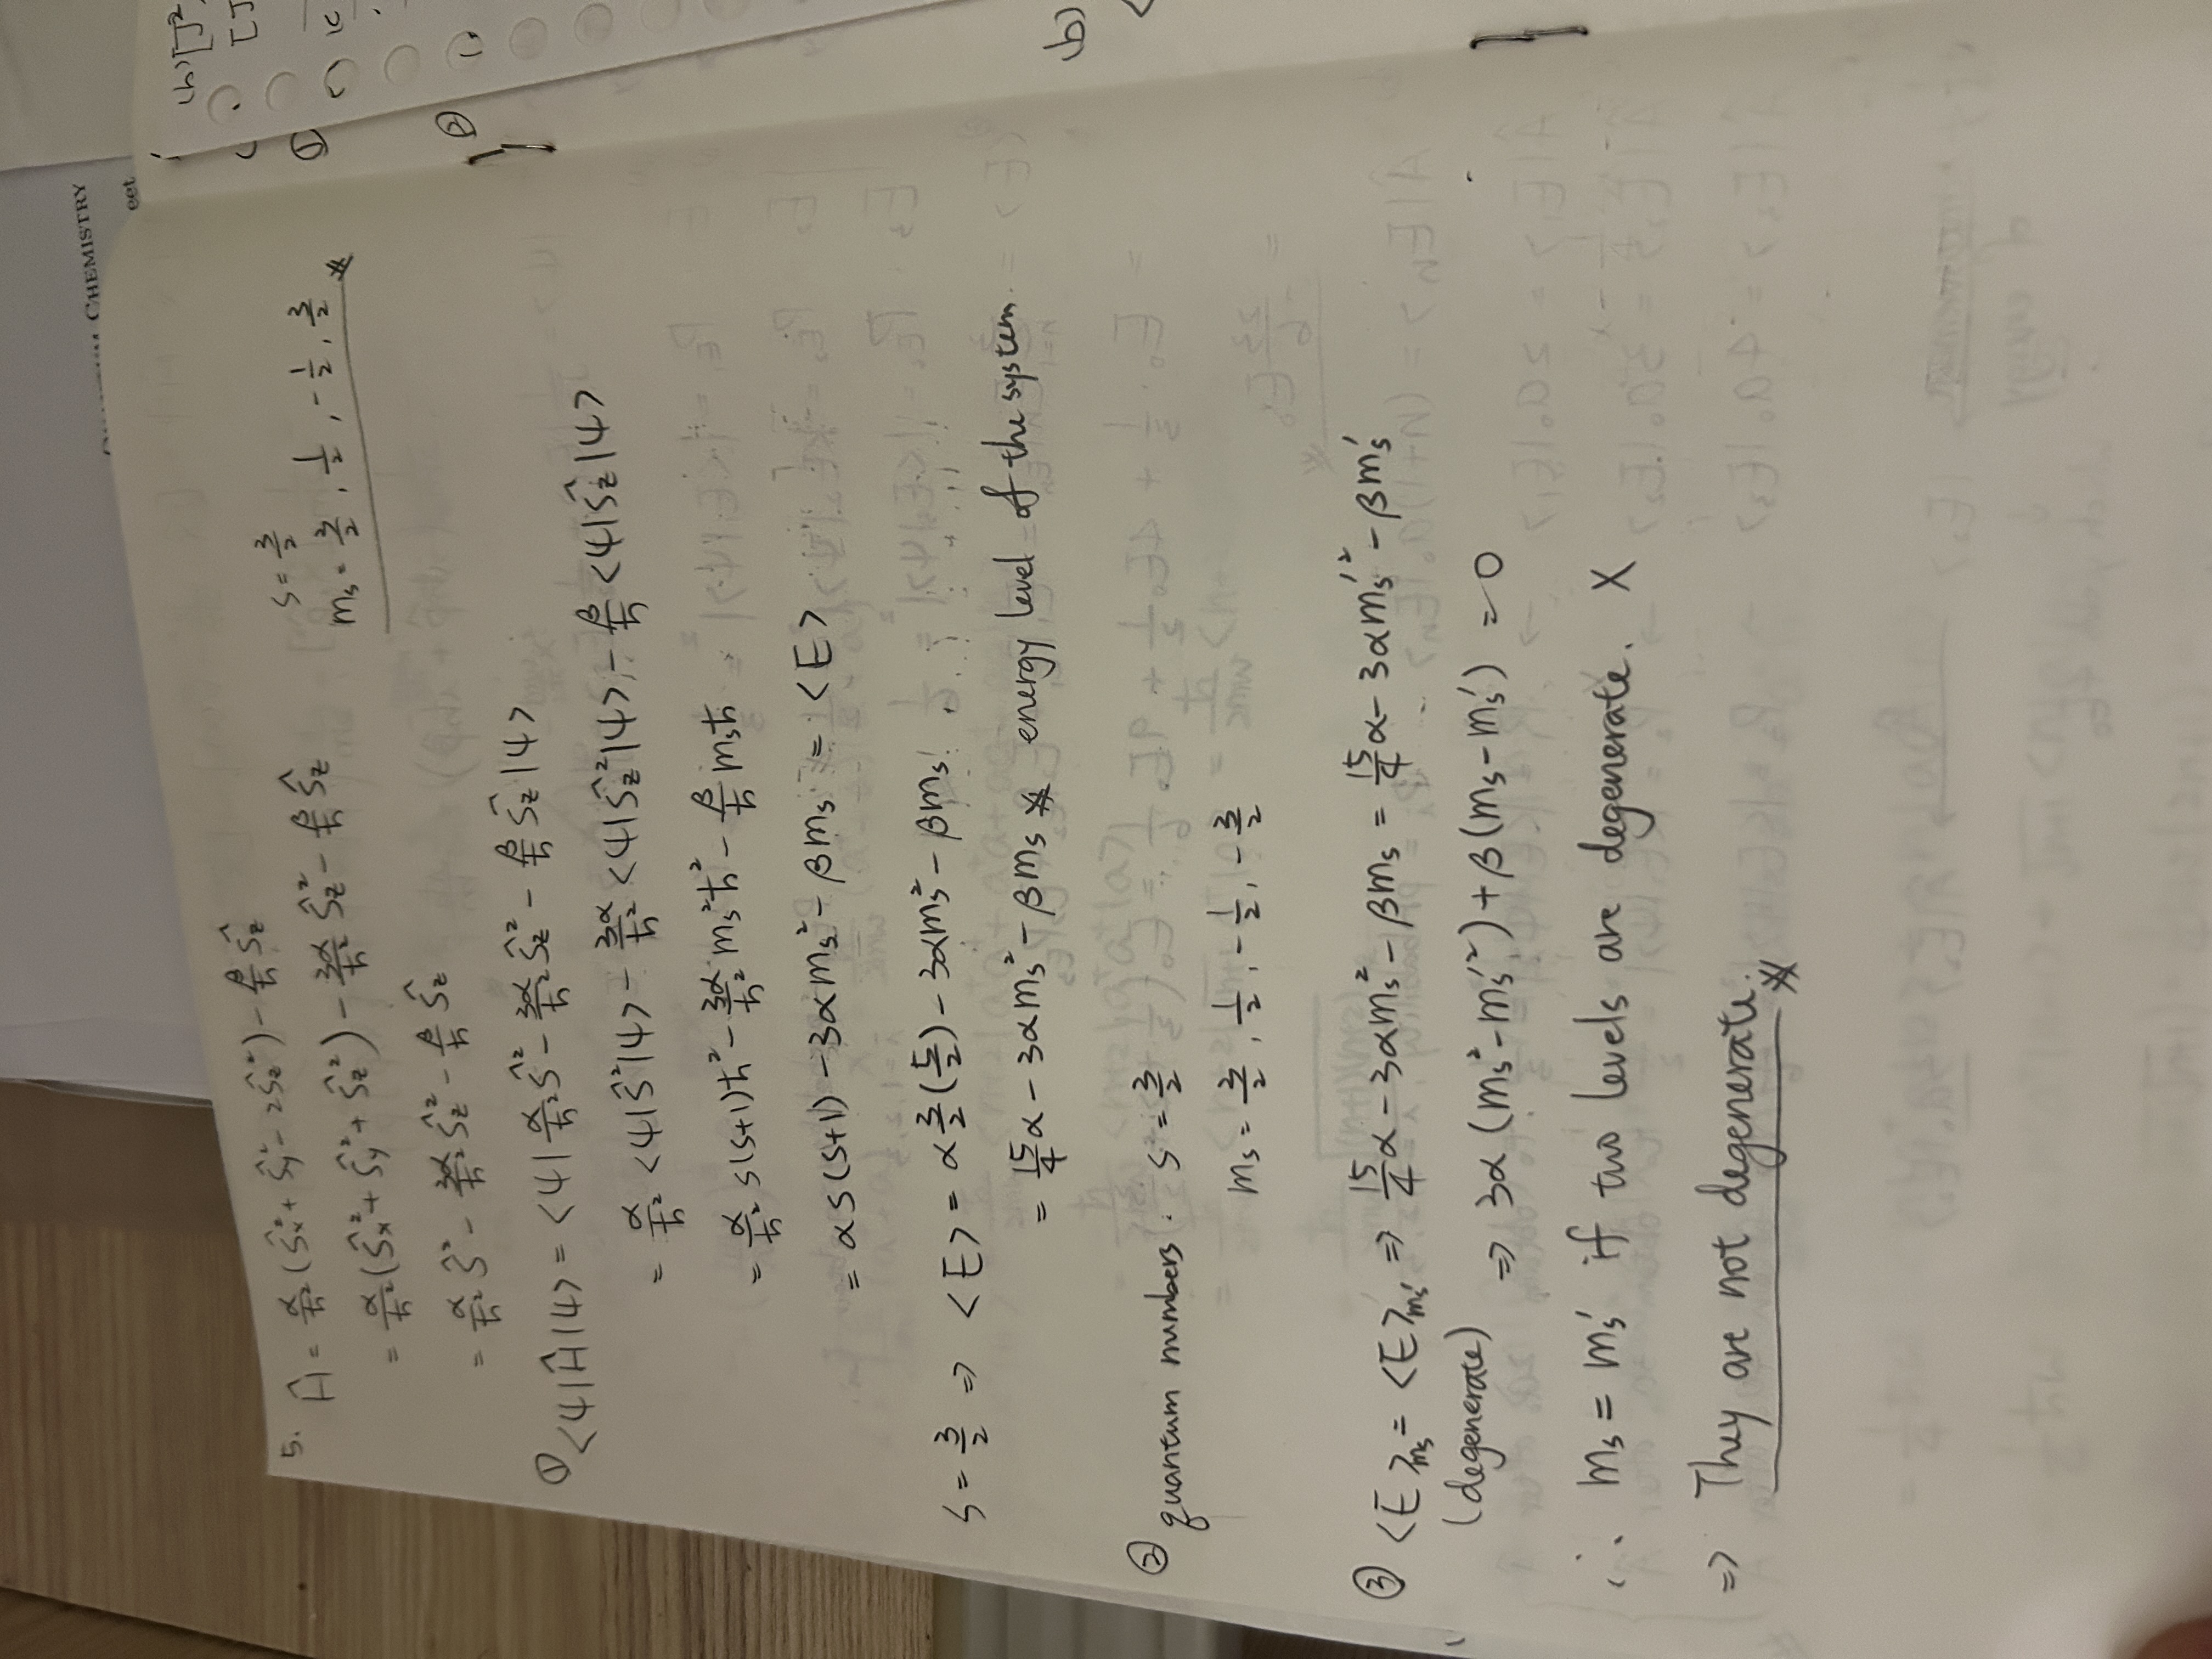 CHEMISTRY
eet
5. Ĥ = α/ħ² (Ŝx² + Ŝy² - 2Ŝz²) - β/ħ Ŝz
= α/ħ² (Ŝx² + Ŝy² + Ŝz²) - 3α/ħ² Ŝz² - β/ħ Ŝz
= α/ħ² Ŝ² - 3α/ħ² Ŝz² - β/ħ Ŝz
s = 3/2
ms = 3/2, 1/2, -1/2, 3/2 ※
① <ψ|Ĥ|ψ> = <ψ| α/ħ² Ŝ² - 3α/ħ² Ŝz² - β/ħ Ŝz |ψ>
= α/ħ² <ψ|Ŝ²|ψ> - 3α/ħ² <ψ|Ŝz²|ψ> - β/ħ <ψ|Ŝz|ψ>
= α/ħ² s(s+1)ħ² - 3α/ħ² ms²ħ² - β/ħ msħ
= αs(s+1) - 3αms² - βms = <E>
s = 3/2 => <E> = α 3/2 (5/2) - 3αms² - βms
= 15/4 α - 3αms² - βms ※ energy level of the system.
② quantum numbers: s = 3/2
ms = 3/2, 1/2, -1/2, -3/2
③ <E>ms = <E>ms' => 15/4 α - 3αms² - βms = 15/4 α - 3αms'² - βms'
(degenerate) => 3α(ms² - ms'²) + β(ms - ms') = 0
∴ ms = ms' if two levels are degenerate. X
=> They are not degenerate. ※
(b) [J²,
[J
①
②
(b)
<